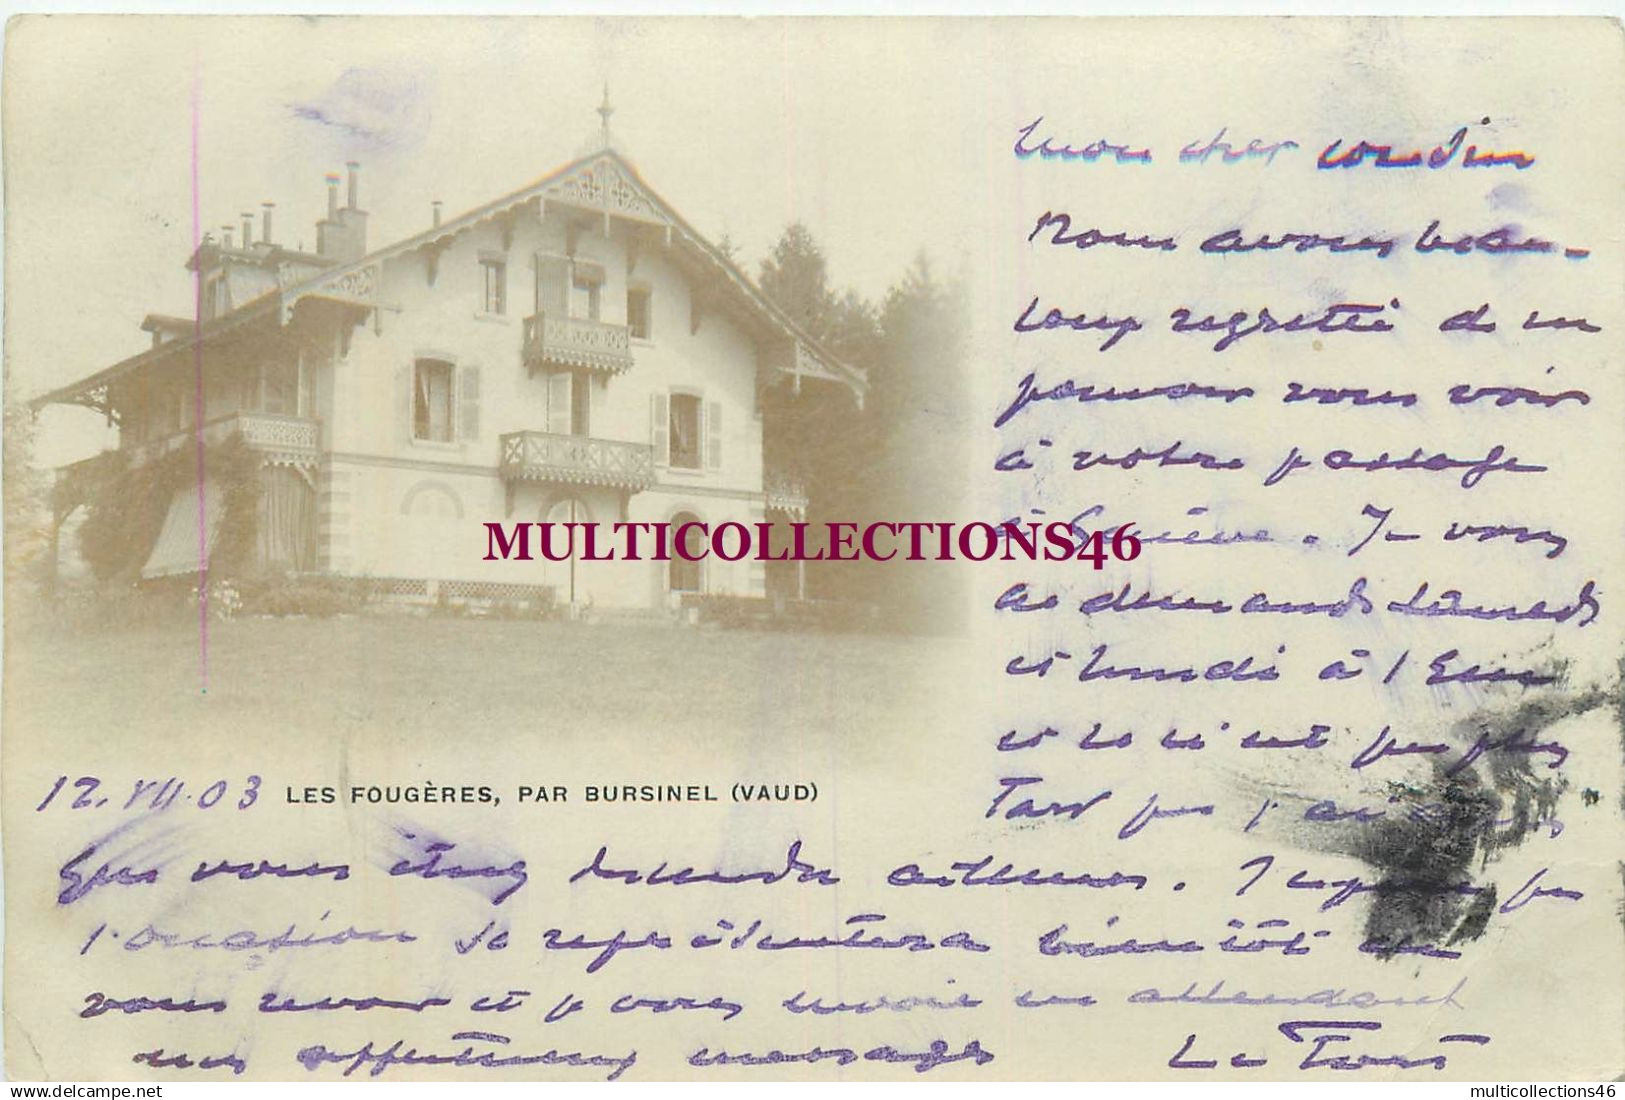 Mon cher cousin
Nous avons beau-
coup regretté de ne
pouvoir vous voir
à votre passage
à Genève. Je vous
ai demandé samedi
et lundi à l'
et ce n'est que plus
tard que j'ai
que vous étiez descendu ailleurs. J'espère que
l'occasion se représentera bientôt de
vous revoir et je vous envoie en attendant
mes affectueux messages
Le Fort
12.VII.03
LES FOUGÈRES, PAR BURSINEL (VAUD)
MULTICOLLECTIONS46
multicollections46